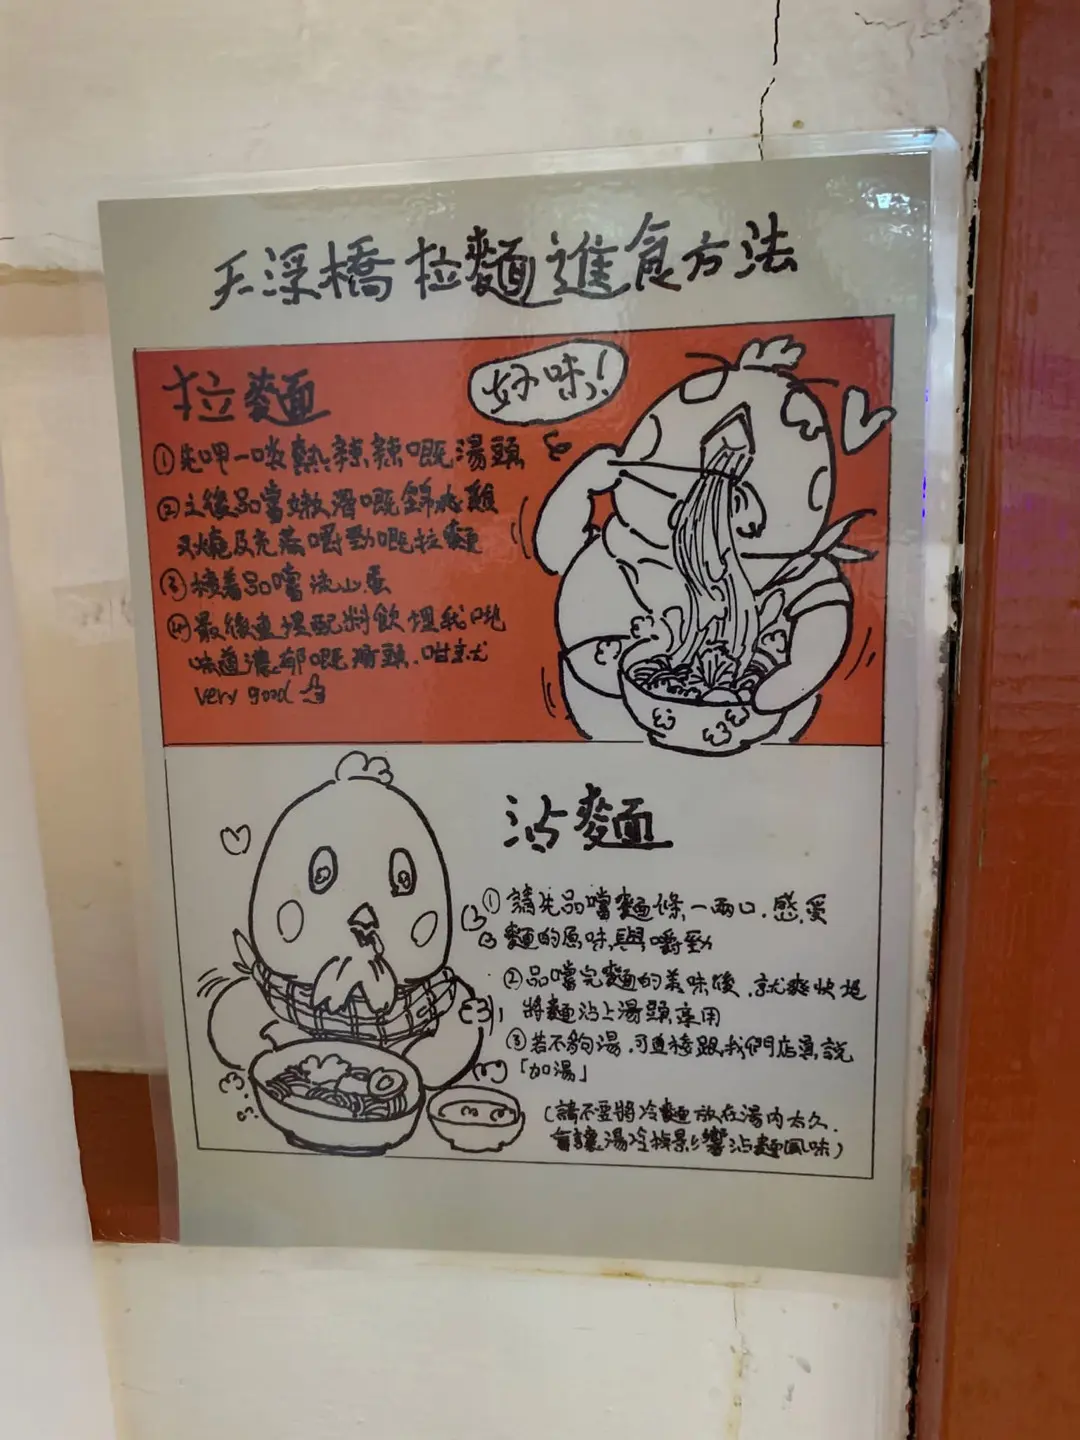 天浮橋拉麵進食方法
拉麵
好味!
①先呷一啖熱辣辣嘅湯頭
②之後品嚐嫩滑嘅錦水雞
叉燒及充滿嚼勁嘅拉麵
③接著品嚐流心蛋
④最後連埋配料飲埋我哋
味道濃郁嘅湯頭，咁就
very good
沾麵
①請先品嚐麵條，一兩口，感受
麵的原味與嚼勁
②品嚐完麵的美味後，就爽快地
將麵沾上湯頭享用
③若不夠湯，可直接跟我們店員說
「加湯」
(請不要將冷麵放在湯內太久，
會讓湯冷掉影響沾麵風味)